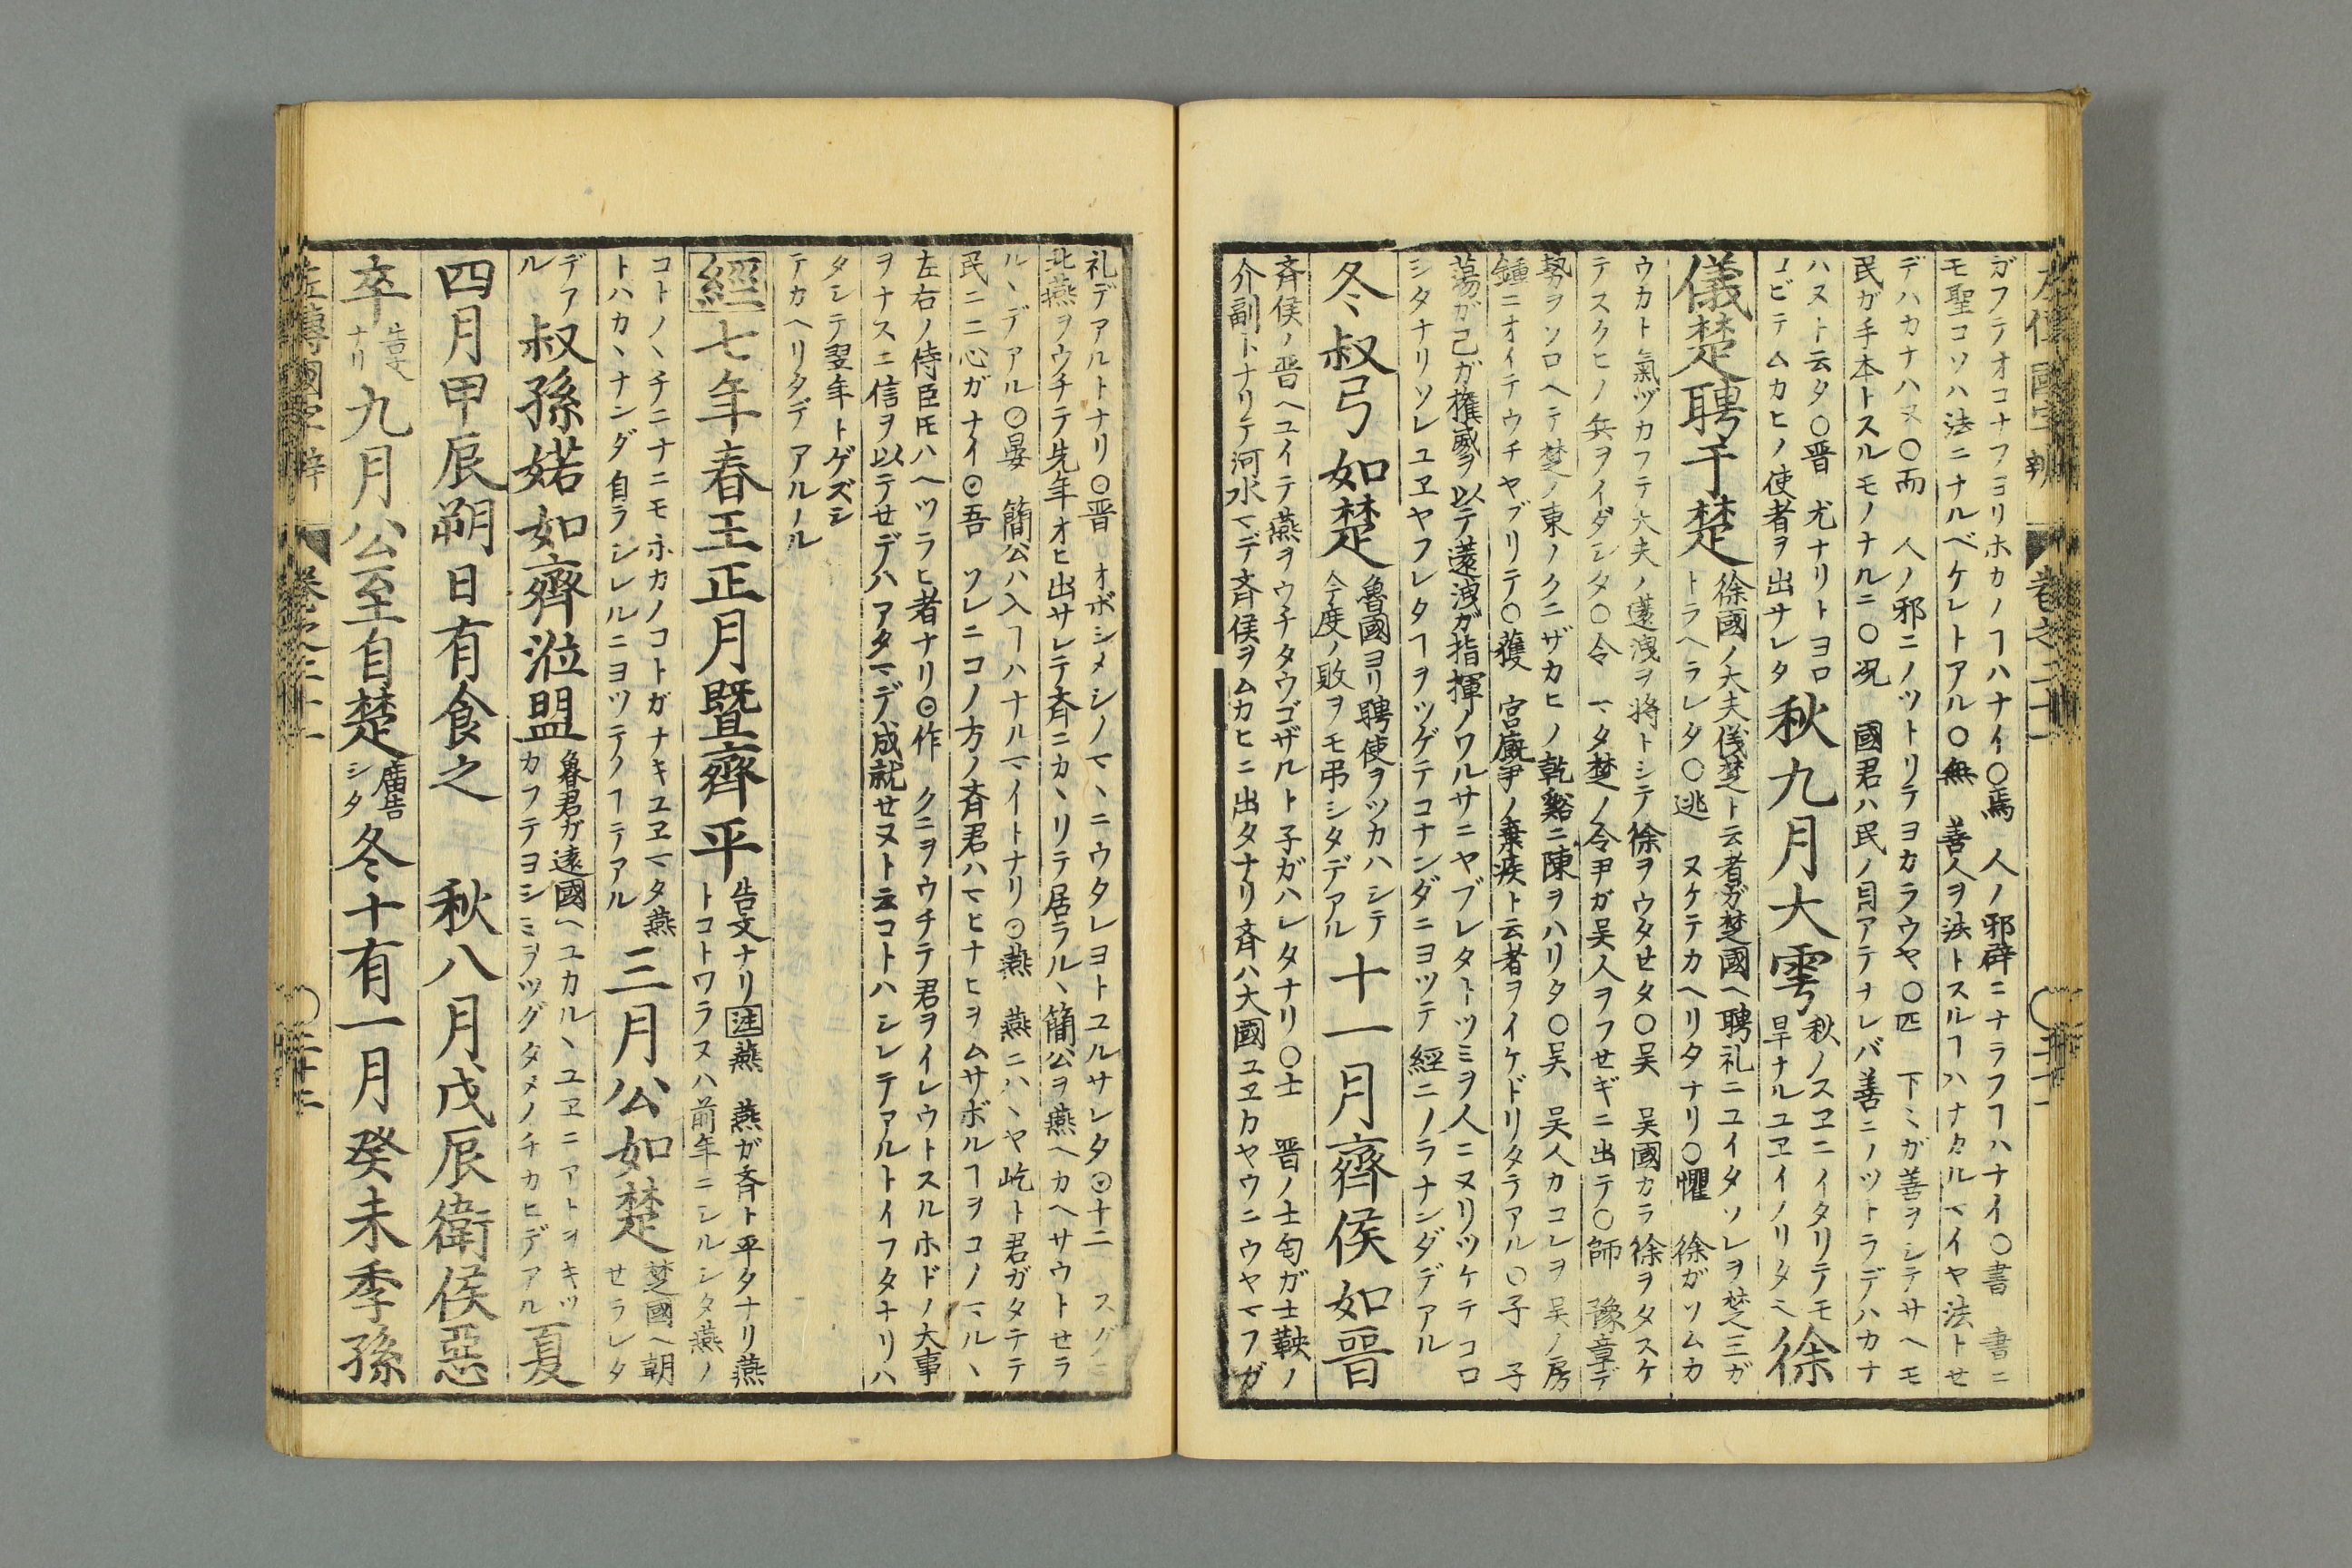 左傳國字辯 卷之二十一
ガフテオコナフヨリホカノヿハナイ○焉 人ノ邪辟ニナラフヿハナイ○書 書ニ
モ聖コソハ法ニナルベケレトアル○無 善人ヲ法トスルヿハナクルマイヤ法トせ
デハカナハヌ○而 人ノ邪ニノツトリテヨカラウヤ○匹 下ミガ善ヲシテサヘモ
民ガ手本トスルモノナルニ○况 國君ハ民ノ目アテナレバ善ニノツトラデハカナ
ハヌト云タ○晋 尤ナリトヨロ
コビテムカヒノ使者ヲ出サレタ
秋九月大雩
秋ノスヱニイタリテモ
旱ナルユヱイノリタヘ
徐
儀楚聘于楚
徐國ノ大夫儀楚ト云者ガ楚國ヘ聘礼ニユイタソレヲ楚王ガ
トラヘラレタ○逃 ヌケテカヘリタナリ○懼 徐ガソムカ
ウカト氣ヅカフテ大夫ノ薳洩ヲ将トシテ徐ヲウタせタ○吴 吴國カラ徐ヲタスケ
テスクヒノ兵ヲイダシタ○令 マタ楚ノ令尹ガ吴人ヲフせギニ出テ○師 豫章デ
勢ヲソロヘテ楚ノ東ノクニザカヒノ乾谿ニ陳ヲハリタ○吴 吴人カコレヲ吴ノ房
鍾ニオイテウチヤブリテ○獲 宮廐尹ノ棄疾ト云者ヲイケドリタテアル○子 子
蕩ガ己ガ権威ヲ以テ薳洩ガ指揮ノワルサニヤブレタトツミヲ人ニヌリツケテコロ
シタナリソレユヱヤフレタヿヲツゲテコナンダニヨツテ經ニノラナンダデアル
冬叔弓如楚
魯國ヨリ聘使ヲツカハシテ
今度ノ敗ヲモ弔シタデアル
十一月齊侯如晋
斉侯ノ晋ヘユイテ燕ヲウ子タウゴザルト子ガハレタナリ○士 晋ノ士匄ガ士鞅ノ
介副トナリテ河水マデ斉侯ヲムカヒニ出タナリ斉ハ大國ユヱカヤウニウヤマフガ
礼デアルトナリ○晋 オボシメシノマヽニウタレヨトユルサレタ⊙十二 スグニ
北燕ヲウチテ先年オヒ出サレテ斉ニカヽリテ居ラルヽ簡公ヲ燕ヘカヘサウトせラ
ルヽデアル○晏 簡公ハ入ヿハナルマイトナリ⊙燕 燕ニハヽヤ屹ト君ガタテテ
民ニ二心ガナイ⊙吾 ソレニコノ方ノ斉君ハマヒナヒヲムサボルヿヲコノマルヽ
左右ノ侍臣𪜈ハヘツラヒ者ナリ⊙作 クニヲウチテ君ヲイレウトスルホドノ大事
ヲナスニ信ヲ以テせデハアタマデ成就せヌト云コトハシレテアルトイフタナリハ
タシテ翌年トゲズシ
テカヘリタデアルール
經七年春王正月暨齊平
告文ナリ注燕 燕ガ斉ト平タナリ燕
トコトワラヌハ前年ニシルシタ燕ノ
コトノヽチニナニモホカノコトガナキユヱマタ燕
トハカヽナンダ自ラシレルニヨツテノヿテアル
三月公如楚
楚國ヘ朝
せラレタ
デア
ル
叔孫婼如齊涖盟
魯君ガ遠國ヘユカルヽユヱニアトヲキツ
カフテヨシミヲツグタメノチカヒデアル
夏
四月甲辰朔日有食之 秋八月戊辰衛侯惡
卒
告文
ナリ
九月公至自楚
廣告
シタ
冬十有一月癸未季孫
左傳國字辯 卷之二十一